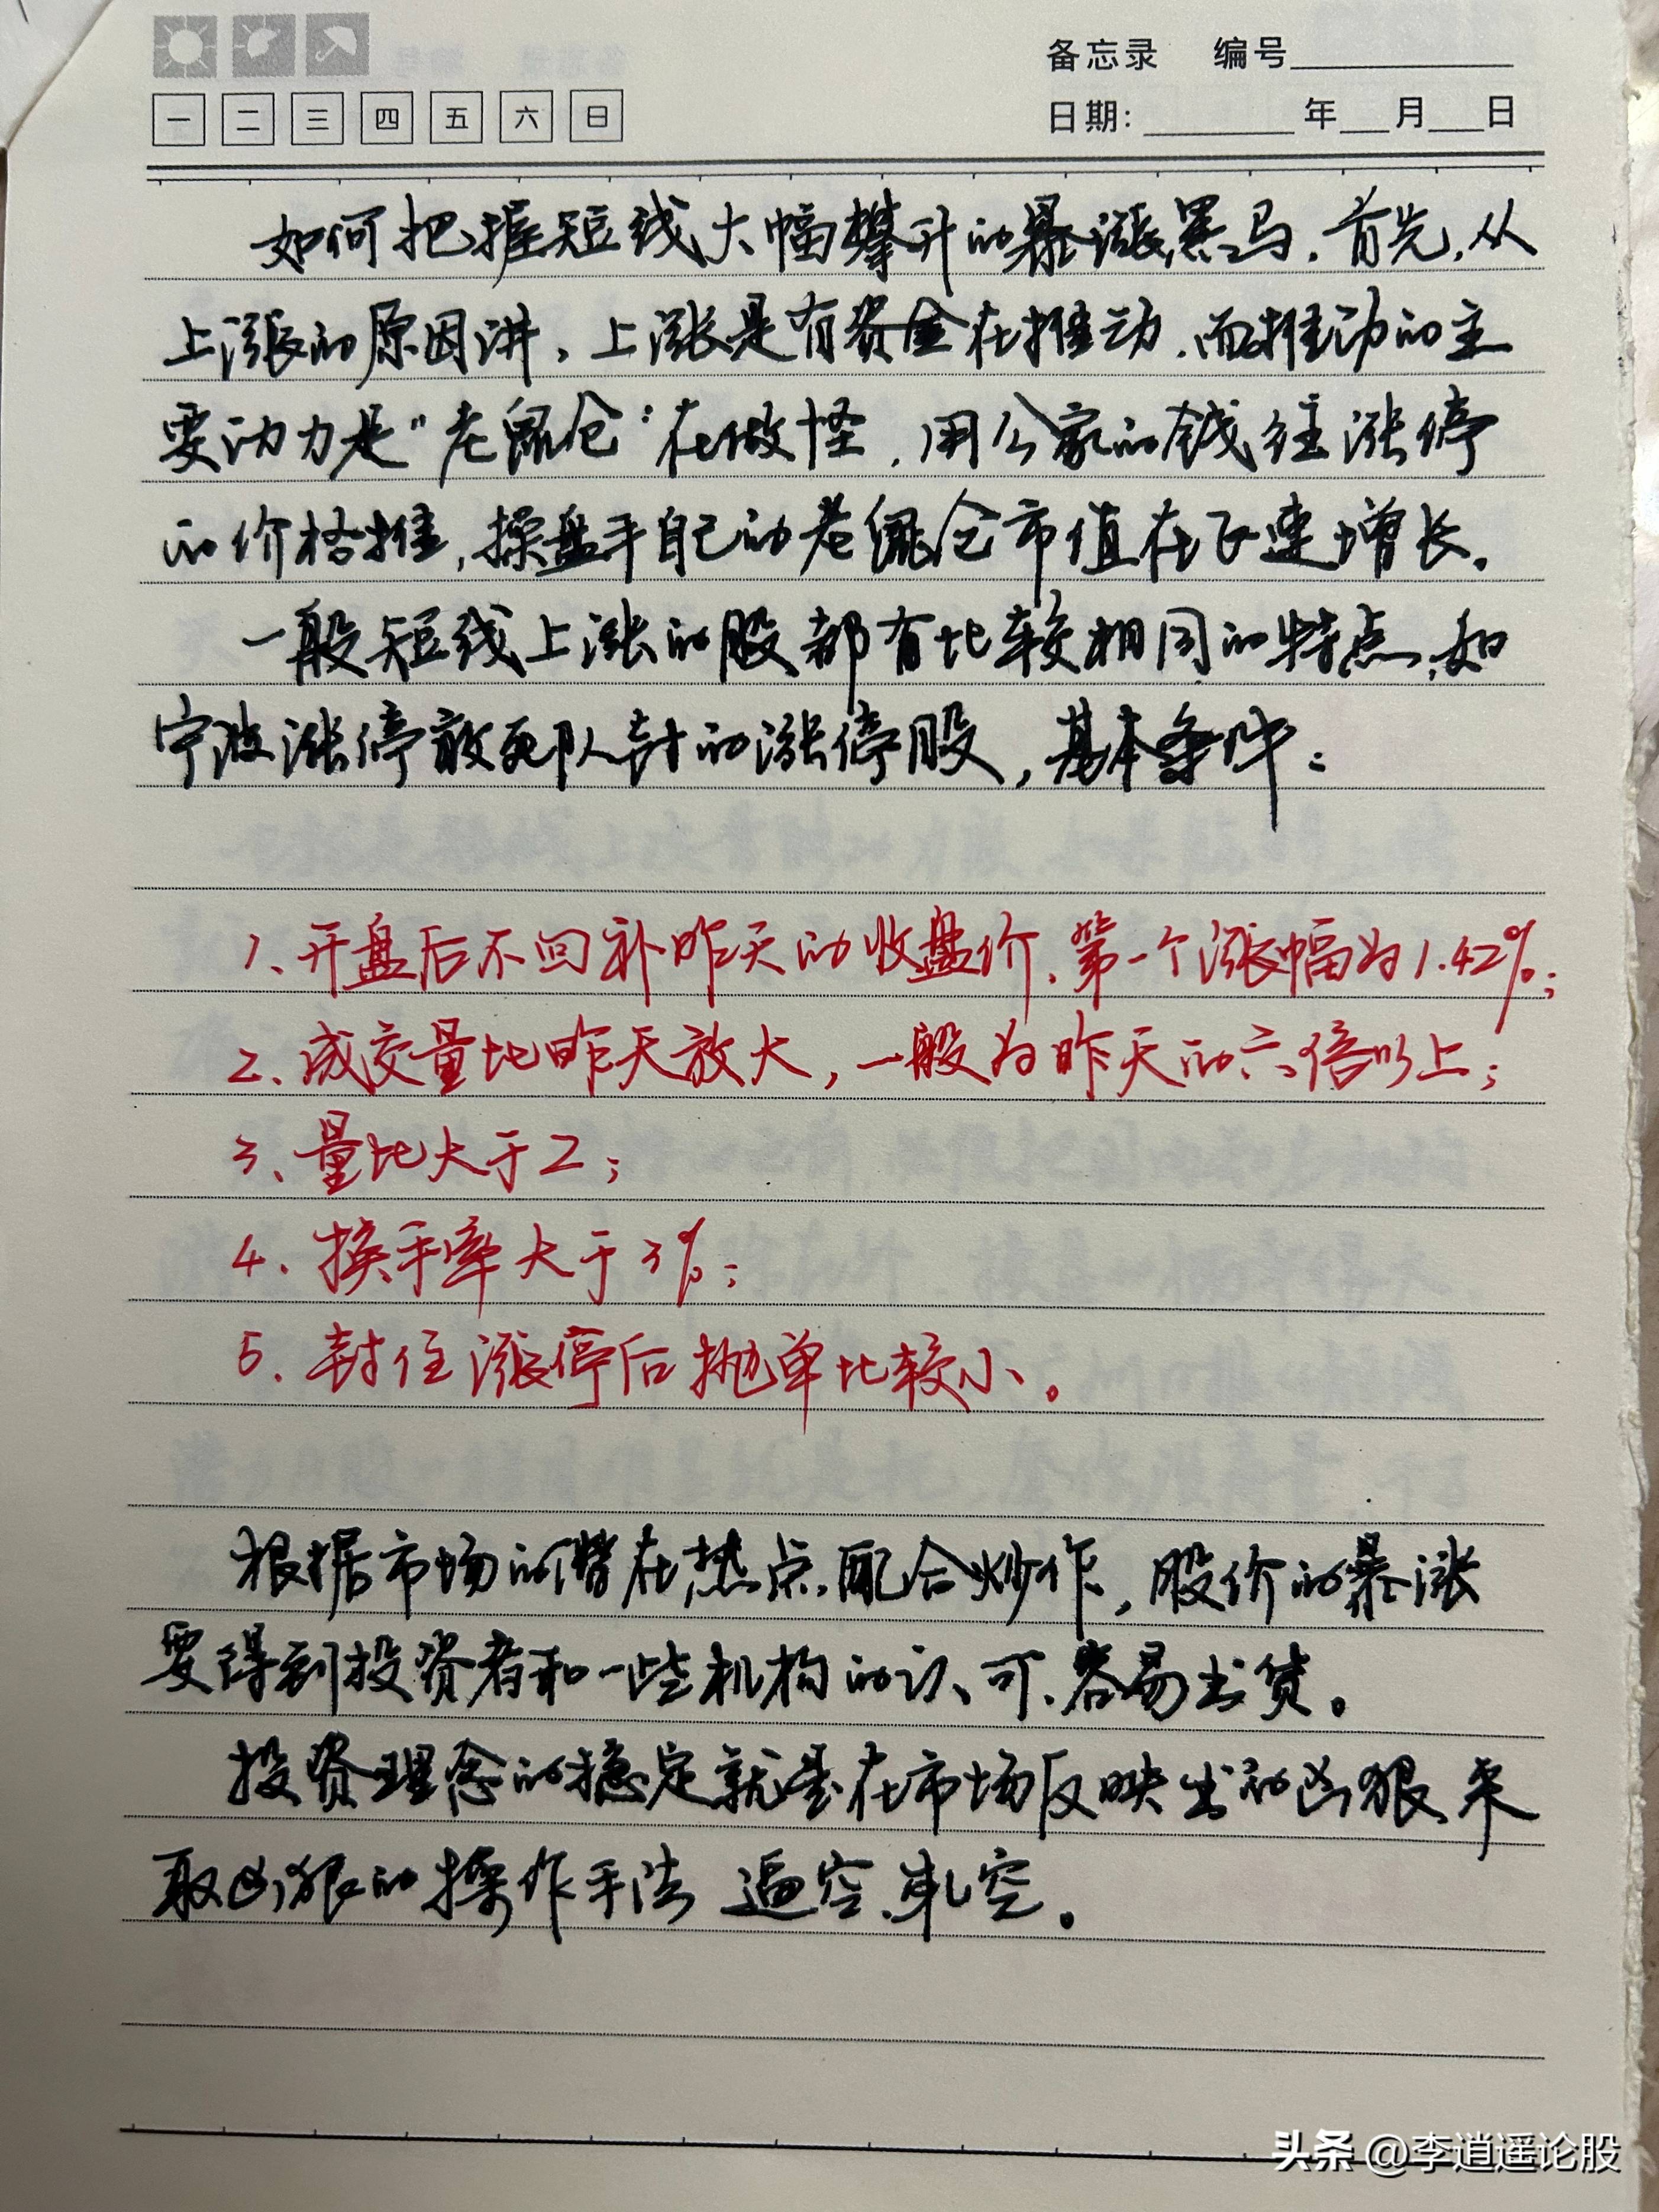 备忘录 编号
一 二 三 四 五 六 日
日期: 年 月 日
如何把握短线大幅攀升的暴涨黑马.首先,从
上涨的原因讲,上涨是有资金在推动.而推动的主
要动力是"老鼠仓"在做怪,用公家的钱往涨停
的价格推,操盘手自己的老鼠仓市值在飞速增长。
一般短线上涨的股都有比较相同的特点,如
宁波涨停敢死队封的涨停股,基本条件:
1、开盘后不回补昨天的收盘价.第一个涨幅为1.42%;
2、成交量比昨天放大,一般为昨天的六倍以上;
3、量比大于2;
4、换手率大于3%;
5、封住涨停后抛单比较小。
根据市场的潜在热点,配合炒作,股价的暴涨
要得到投资者和一些机构的认可、容易出货。
投资理念的稳定就是在市场反映出的凶狠,采
取凶狠的操作手法 逼空、轧空。
头条 @李逍遥论股